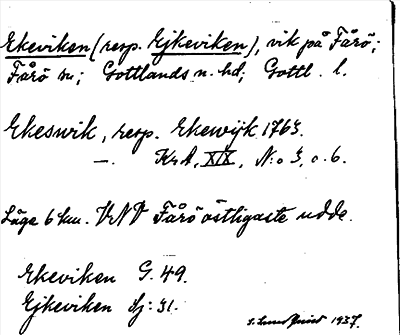 Ekeviken (resp. Ejkeviken), vik på Fårö;
Fårö sn; Gottlands n. hd; Gottl. l.
Ekeswik, resp. Ekewijk 1763.
—. KrA, XIX, N:o 3, o. 6.
Läge 6 km. VNV Fårö östligaste udde.
Ekeviken G. 49.
Ejkeviken Sj: 31.
S. Lundquist 1937.